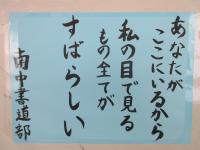 あなたが
ここにいるから
私の目で見る
もの全てが
すばらしい
南中書道部